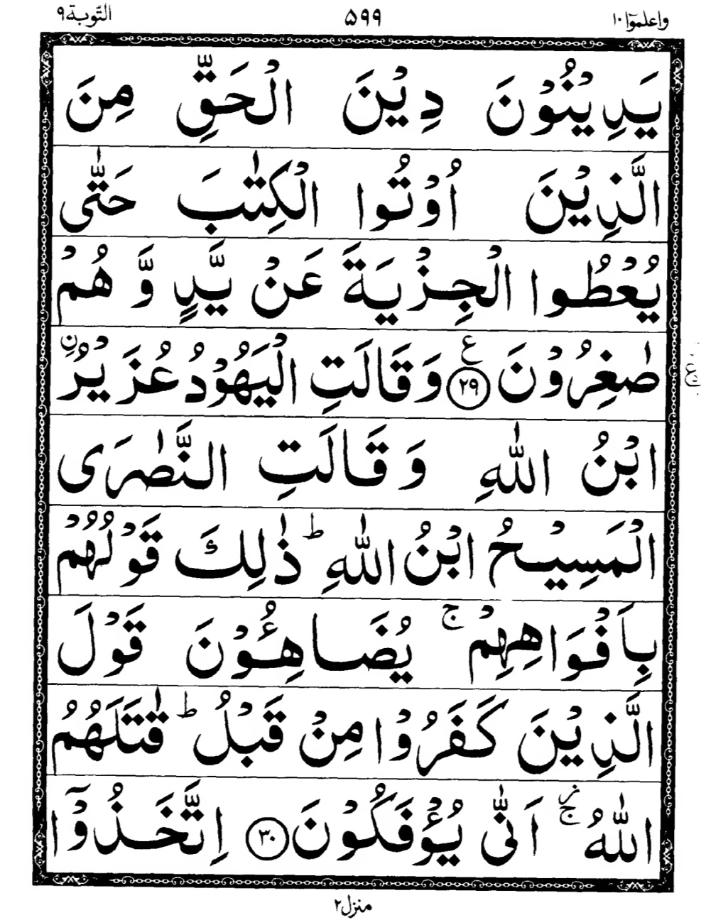 واعلموا۱۰ ۵۹۹ التوبة۹
يَدِيْنُوْنَ دِيْنَ الْحَقِّ مِنَ
الَّذِيْنَ اُوْتُوا الْكِتٰبَ حَتّٰى
يُعْطُوا الْجِزْيَةَ عَنْ يَّدٍ وَّ هُمْ
صٰغِرُوْنَ ﴿۲۹﴾ع وَ قَالَتِ الْيَهُوْدُ عُزَيْرُ ۨ
ابْنُ اللّٰهِ وَ قَالَتِ النَّصٰرَى
الْمَسِيْحُ ابْنُ اللّٰهِ ؕ ذٰلِكَ قَوْلُهُمْ
بِاَفْوَاهِهِمْ ۚ يُضَاهِـُٔوْنَ قَوْلَ
الَّذِيْنَ كَفَرُوْا مِنْ قَبْلُ ؕ قٰتَلَهُمُ
اللّٰهُ ۚ۫ اَنّٰى يُؤْفَكُوْنَ ﴿۳۰﴾ اِتَّخَذُوْۤا
منزل۲